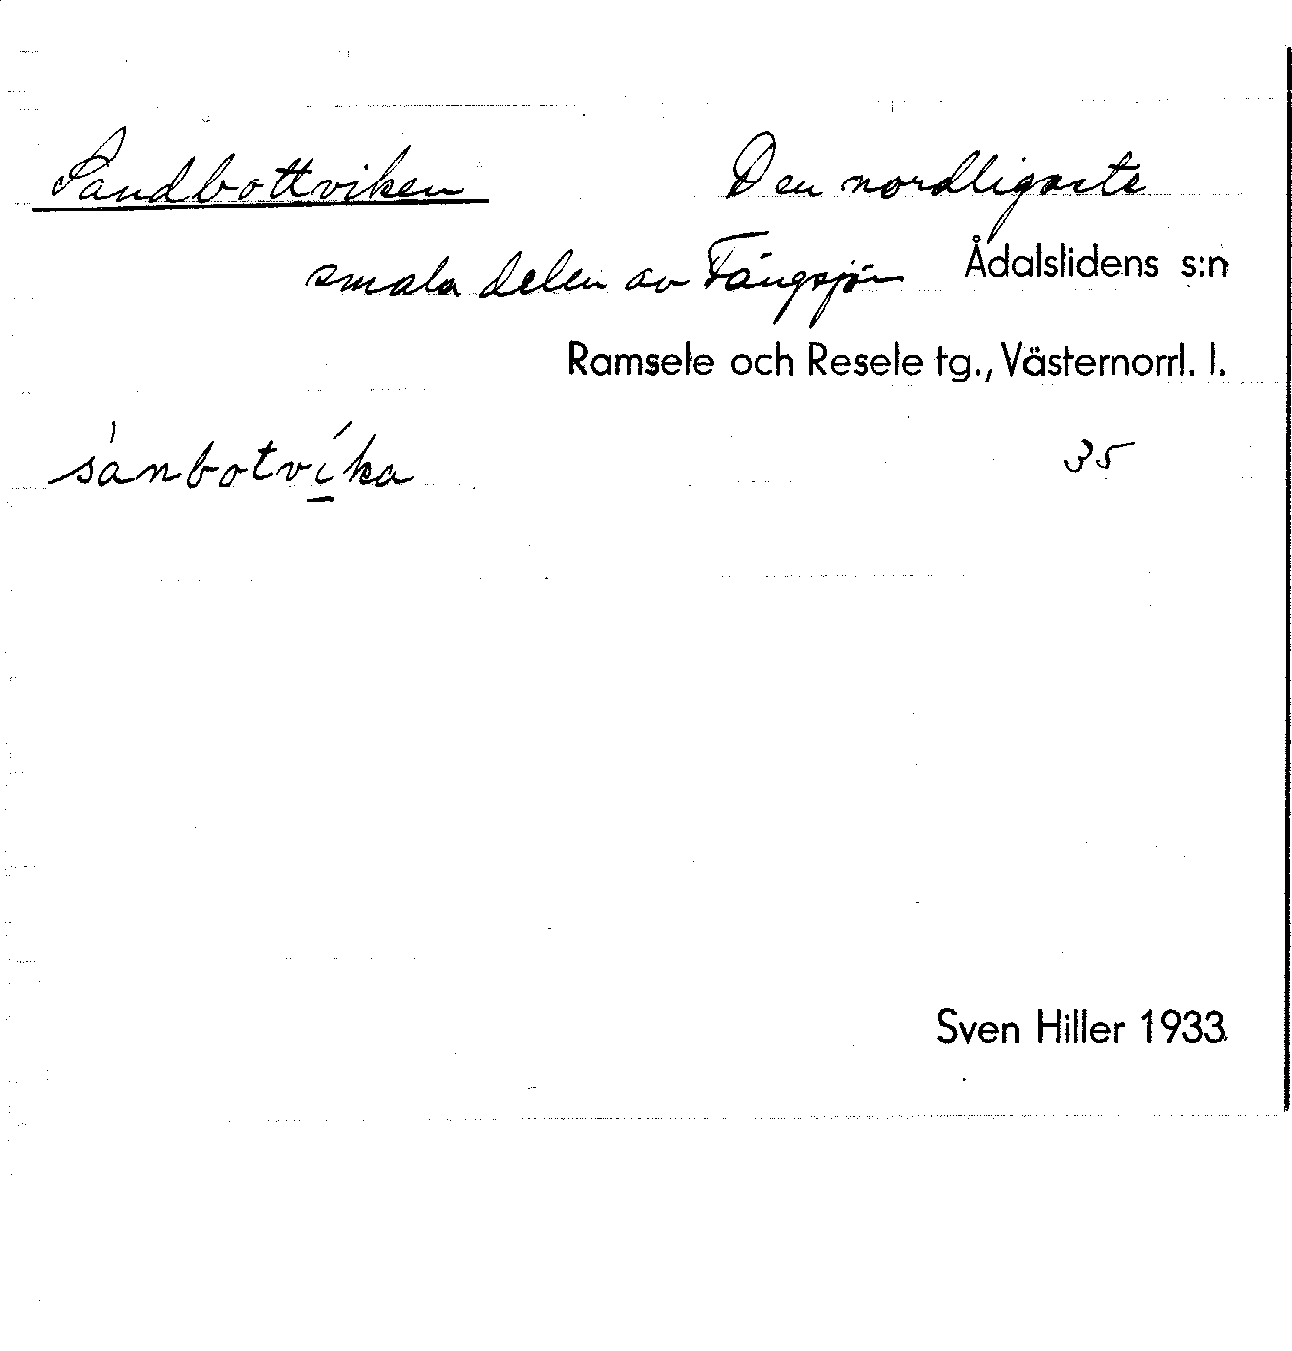 Sandbottviken Den nordligaste
smala delen av Tängsjön Ådalslidens s:n
Ramsele och Resele tg., Västernorrl. l.
sànbotví̱ka 35
Sven Hiller 1933